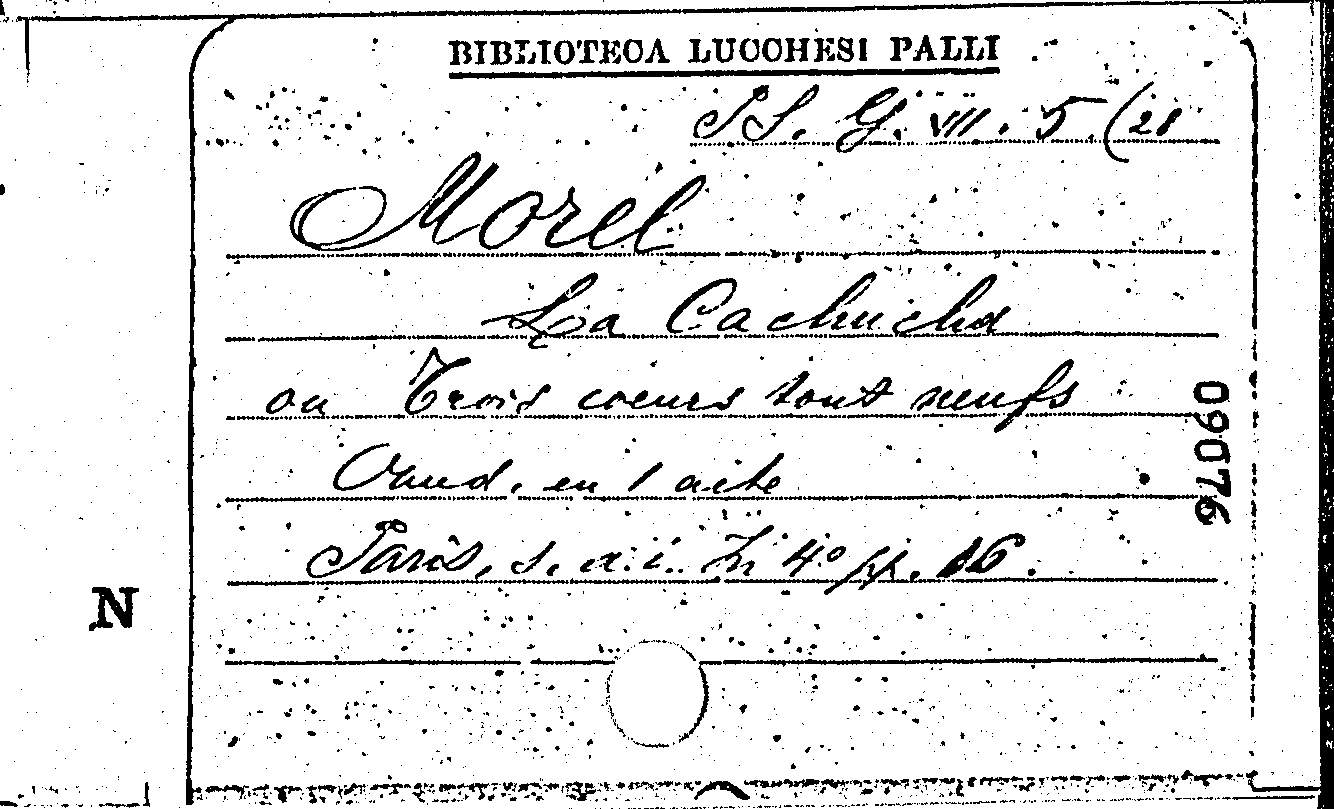 BIBLIOTECA LUCCHESI PALLI
PS. G. VII. 5 (28
Morel
La Cachucha
ou Trois coeurs tout neufs
Vaud. en 1 acte
Paris, s. a. i. In 4º pp. 16.
09076
N